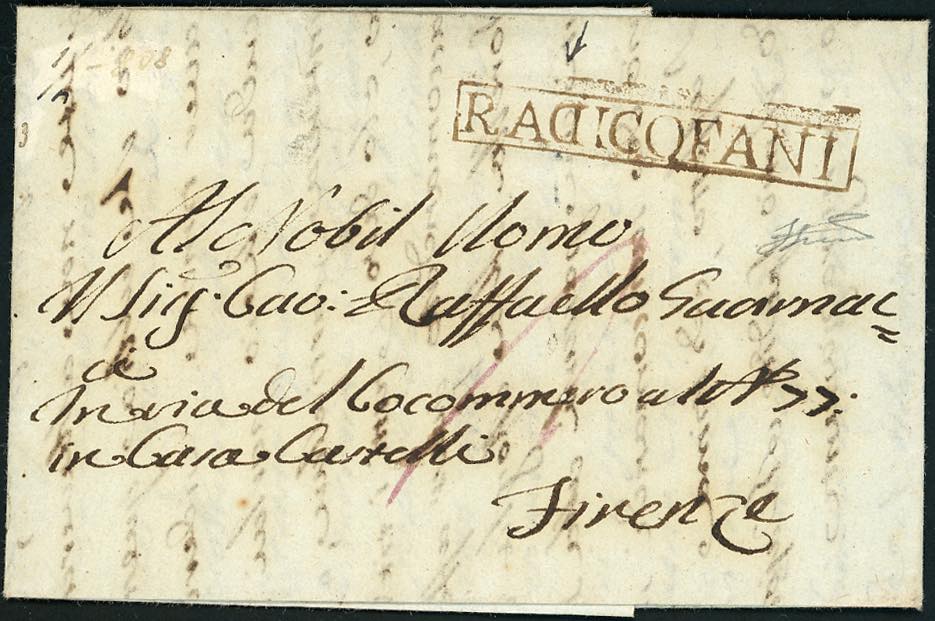 1808
RADICOFANI
Al Nobil Uomo
Il Sig: Cav: Raffaello Guarnac=
ci
In via del Cocommero al N° 77:
in Casa Castelli
Firenze